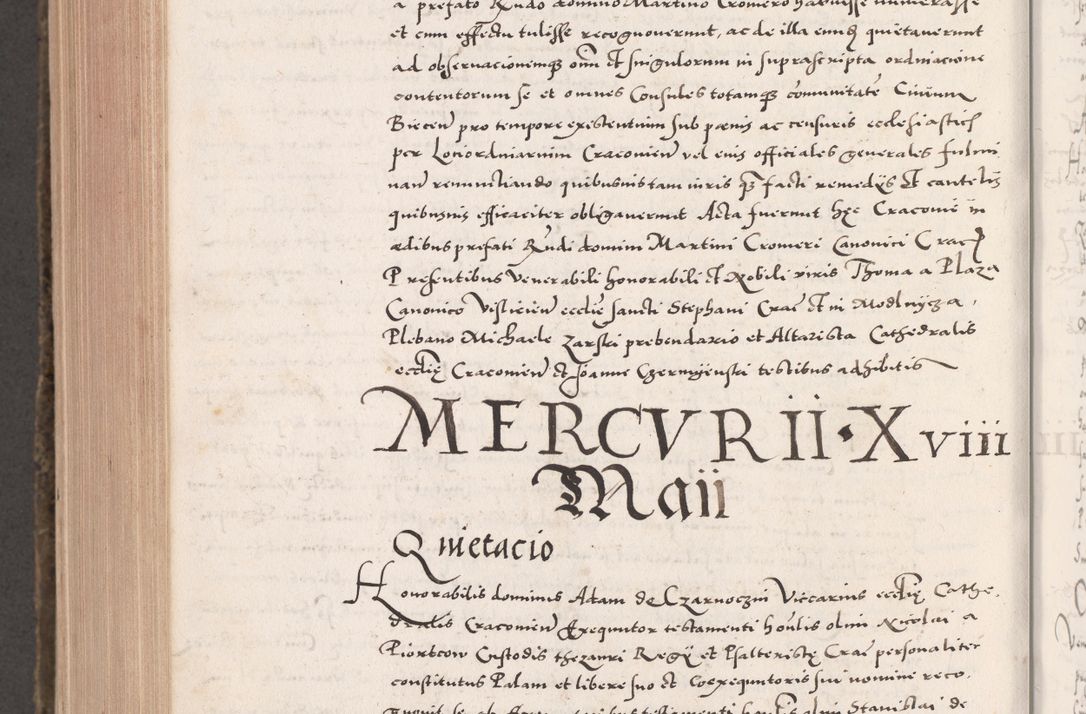 a prefato Rndo domino Martino Cromero habuisse numerasse
et cum effectu tulisse recognoverunt, ac de illa eundem quietaverunt
ad observacionemque omnium et singulorum in suprascripta ordinacione
contentorum se et omnes Consules totamque comunitatem Civium
Biecen pro tempore existentium sub penis ac censuris ecclesiasticis
per Lociordinarium Cracovien vel eius officiales generales fulmi
nan renunctiando quibusvis tam iuris quam facti remedijs et cautelis
quibusvis efficaciter obligaverunt Acta fuerunt hęc Cracovie in
ędibus prefati Rndi domini Martini Cromeri Canonici Crac
Presentibus Venerabili honorabili et Nobili viris Thoma a Plaza
Canonico Vislicien ecclie sancti Stephani Crac et in Modlnycza,
Plebano Michaele Zarski prebendario et Altarista Cathedralis
ecclię Cracovien et Joanne Czermyenski testibus adhibitis
MERCVRII · Xviii
Maii
Quietacio
Honorabilis dominus Adam de Czarnoczin Viccarius ecclię Cathe,
dralis Cracovien Exequutor testamenti honlis olim Nicolai a
Piortcow Custodis thezauri Regij et Psalteristę Crac personaliter
constitutus Palam et libere suo et Coexequutoris sui nomine reco,
gnovit se ab testamenti honlis olim Stanislai de